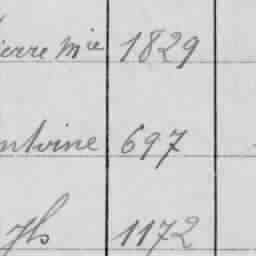 ierre Mie 1829
ntoine 697
Jh 1172